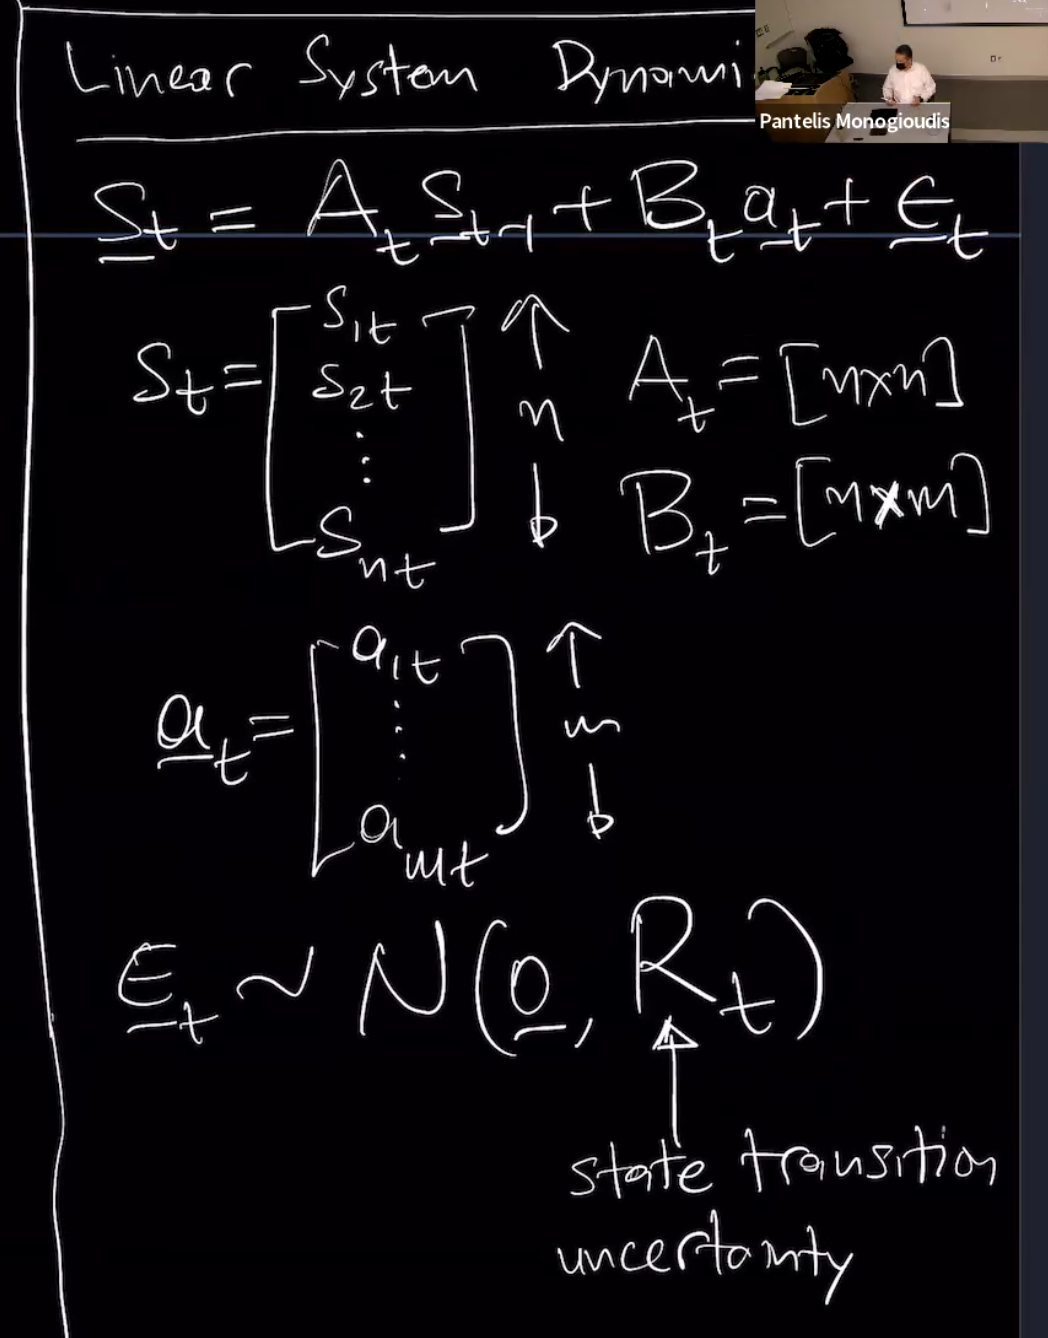 Linear System Dynami
Pantelis Monogioudis
S_t = A_t S_t-1 + B_t a_t + ε_t
S_t = [S_1t
S_2t
⋮
S_nt] ↑ n ↓
A_t = [n×n]
B_t = [n×m]
a_t = [a_1t
⋮
a_mt] ↑ m ↓
ε_t ~ N(0, R_t)
↑
state transition
uncertainty